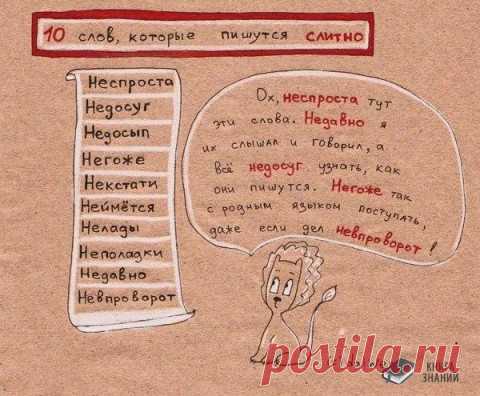 10 слов, которые пишутся слитно
Неспроста
Недосуг
Недосып
Негоже
Некстати
Неймётся
Нелады
Неполадки
Недавно
Невпроворот
Ох, неспроста тут
эти слова. Недавно я
их слышал и говорил, а
всё недосуг узнать, как
они пишутся. Негоже так
с родным языком поступать,
даже если дел невпроворот!
КНИГА
ЗНАНИЙ
postila.ru